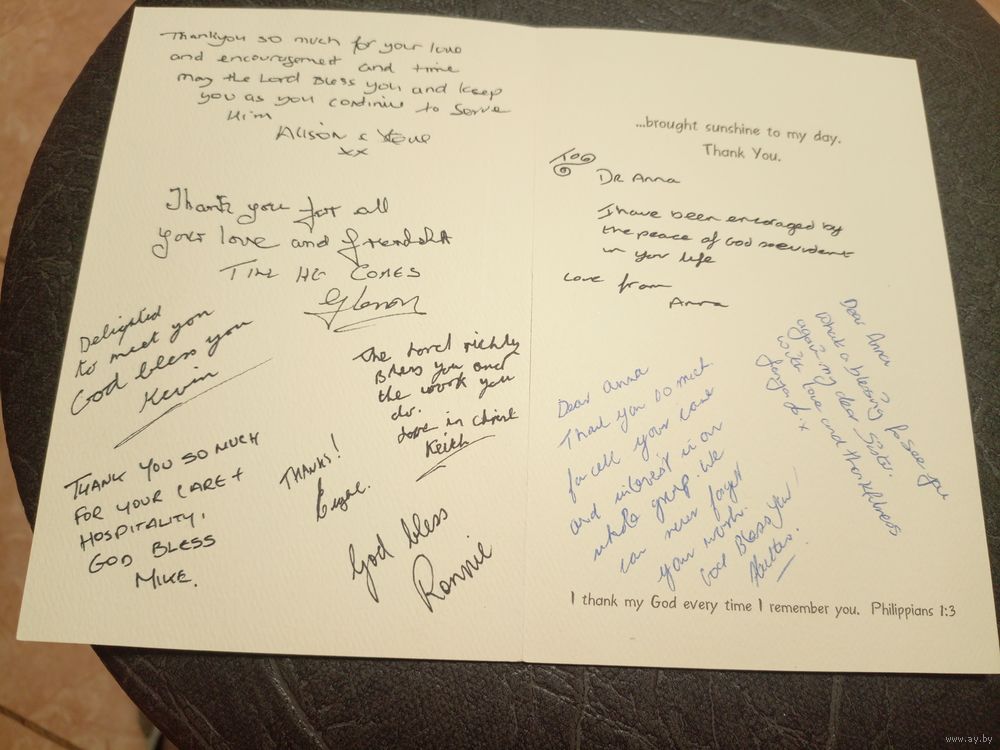 Thankyou so much for your love
and encouragement and time
may the Lord Bless you and keep
you as you continue to serve
Him
Alison &
xx
Thank you for all
your love and
TILL HE COMES
Delighted
to meet you
God bless you
Kevin
The Lord richly
Bless you and
the work you
do.
Love in Christ
Keith
THANK YOU SO MUCH
FOR YOUR CARE +
HOSPITALITY,
GOD BLESS
MIKE.
THANKS!
God bless
Ronnie
...brought sunshine to my day.
Thank You.
TO
DR Anna
I have been encoraged by
the peace of God so evident
in your life
Love from
Anna
Dear Anna
Thank you so much
for all your care
and interest in our
whole group. We
can never forget
your work.
God Bless You!
Dear Anna
What a blessing to see you
again my dear Sister.
With love and thankfulness
I thank my God every time I remember you. Philippians 1:3
www.ay.by